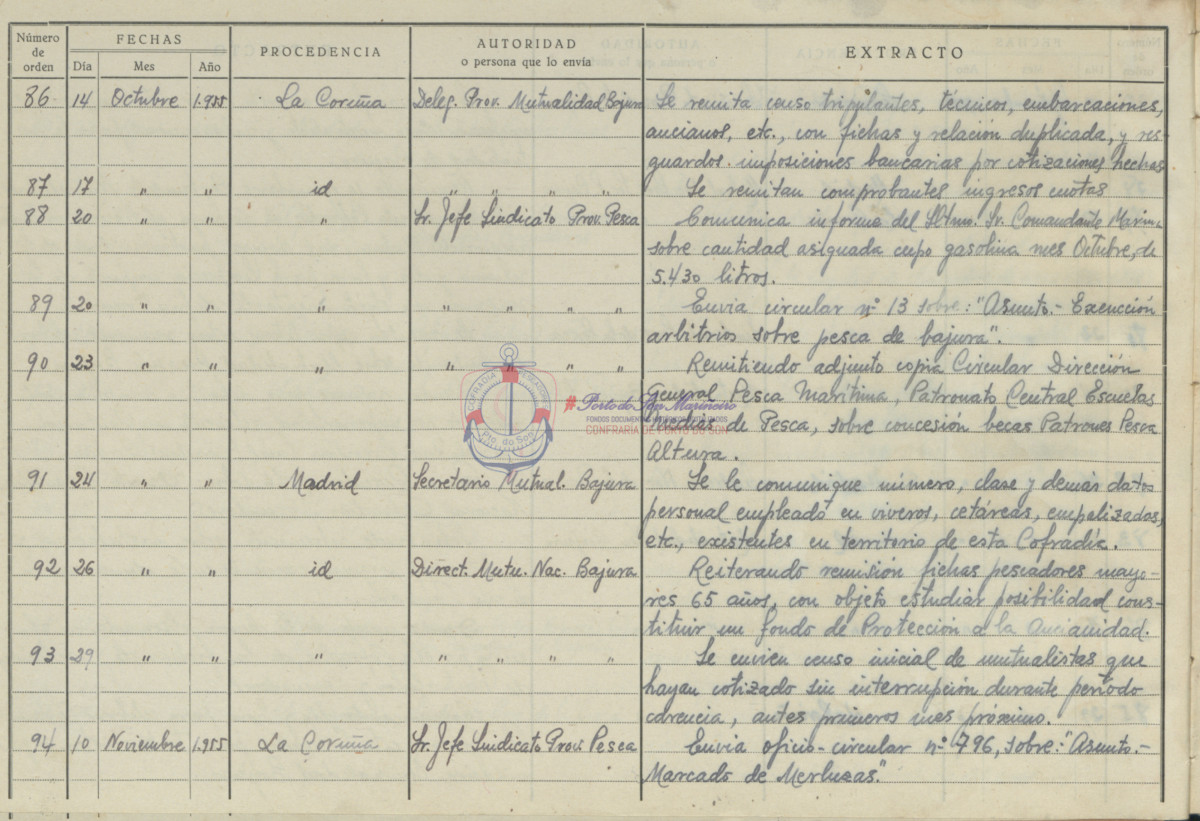 Número de orden FECHAS PROCEDENCIA AUTORIDAD o persona que lo envía EXTRACTO
Día Mes Año
86 14 Octubre 1.955 La Coruña Deleg. Prov. Mutualidad Bajura Se remita censo tripulantes, técnicos, embarcaciones,
ancianos, etc., con fichas y relación duplicada, y res-
guardos imposiciones bancarias por cotizaciones hechas
87 17 " " id " " " " Se remitan comprobantes ingresos cuotas
88 20 " " " Sr. Jefe Sindicato Prov. Pesca Comunica informe del Iltmo. Sr. Comandante Marina
sobre cantidad asignada cupo gasolina mes Octubre, de
5.430 litros.
89 20 " " " " " " " Envia circular nº 13 sobre: "Asunto.- Exención
arbitrios sobre pesca de bajura".
90 23 " " " " " " " Remitiendo adjunto copia Circular Dirección
General Pesca Marítima, Patronato Central Escuelas
Medias de Pesca, sobre concesión becas Patrones Pesca
Altura.
COFRADIA PESCADORES
Pto. do Son
#Porto do Son Mariñeiro
CONFRARÍA DE PORTO DO SON
91 24 " " Madrid Secretario Mutual. Bajura Se le comunique número, clase y demás datos
personal empleado en viveros, cetáreas, empalizadas,
etc., existentes en territorio de esta Cofradía.
92 26 " " id Direct. Mutu. Nac. Bajura Reiterando remisión fichas pescadores mayo-
res 65 años, con objeto estudiar posibilidad cons-
tituir un fondo de Protección a la Ancianidad.
93 29 " " " " " " " Se envien censo inicial de mutualistas que
hayan cotizado sin interrupción durante período
carencia, antes primeros mes próximo.
94 10 Noviembre 1.955 La Coruña Sr. Jefe Sindicato Prov. Pesca Envia oficio-circular nº 796, sobre: "Asunto.-
Marcado de Merluzas".